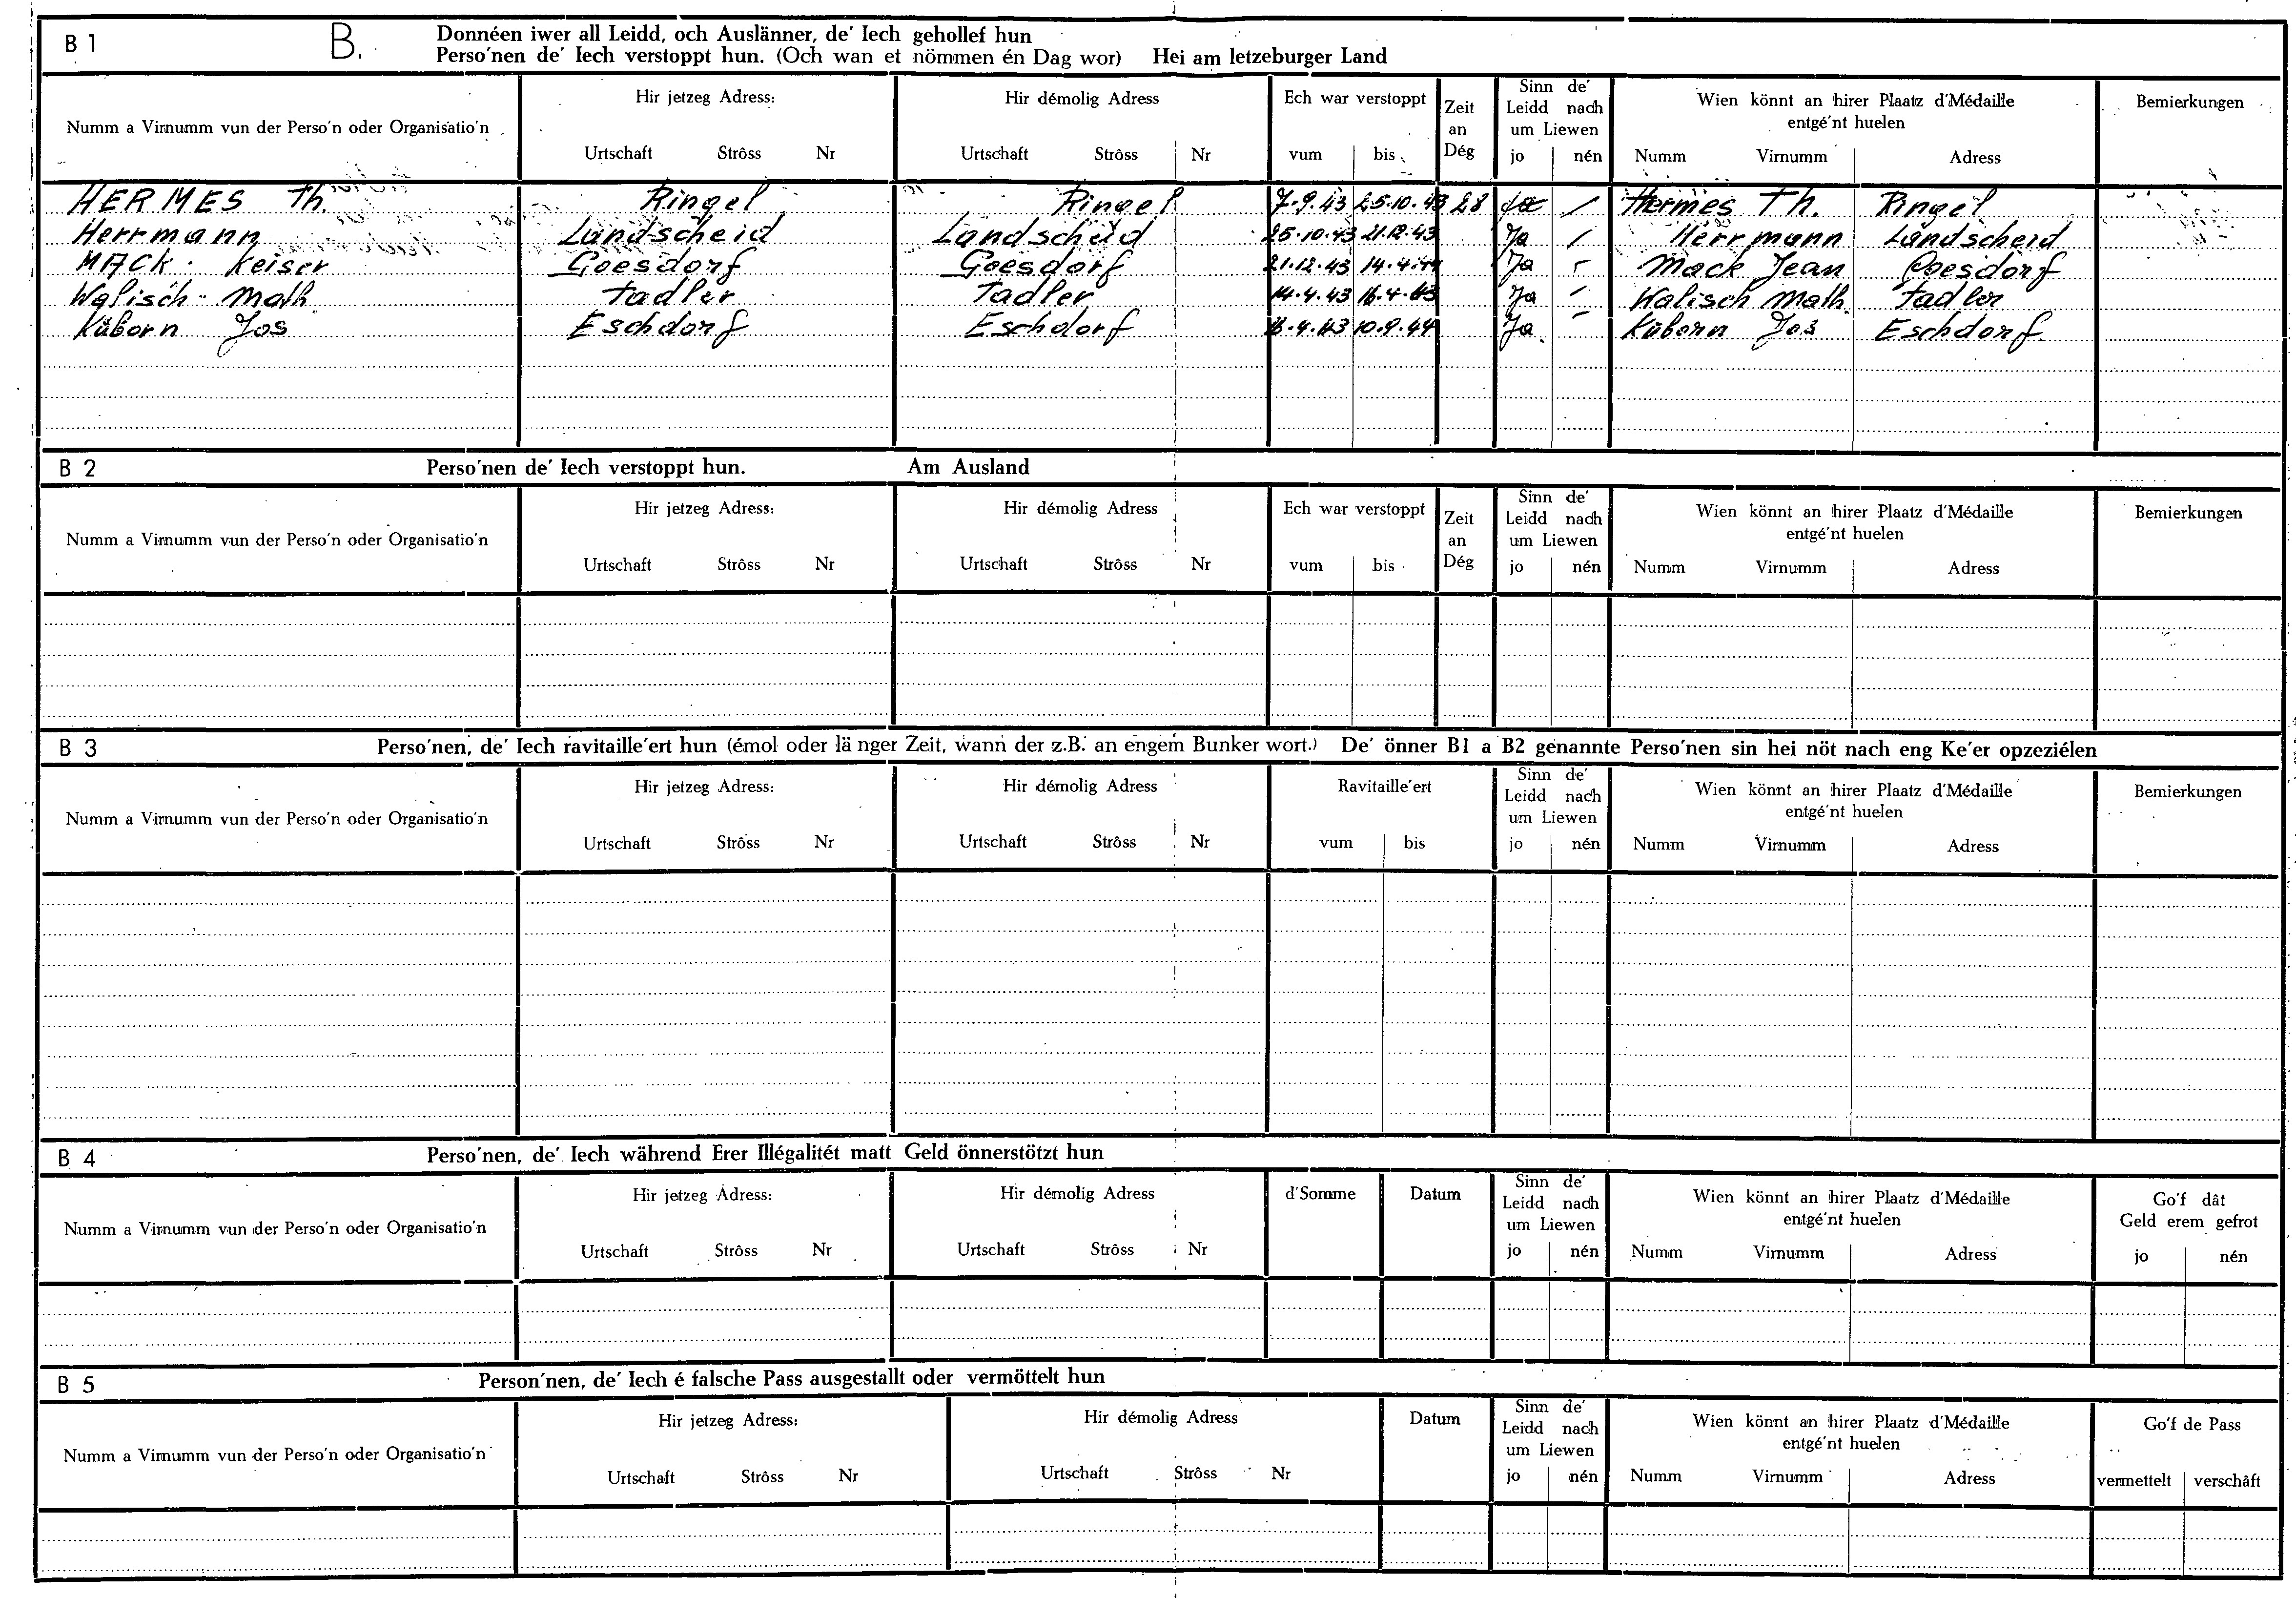 B 1 B. Donnéen iwer all Leidd, och Auslänner, de' Iech gehollef hun
Perso'nen de' Iech verstoppt hun. (Och wan et nömmen én Dag wor) Hei am letzeburger Land
Numm a Virnumm vun der Perso'n oder Organisatio'n
Hir jetzeg Adress:
Urtschaft Strôss Nr
Hir démolig Adress
Urtschaft Strôss Nr
Ech war verstoppt
vum bis
Zeit
an
Dég
Sinn de'
Leidd nach
um Liewen
jo nén
Wien könnt an hirer Plaatz d'Médaille
entgé'nt huelen
Numm Virnumm Adress
Bemierkungen
HERMES Th. Ringel Ringel 7.9.43 25.10.43 28 Ja / Hermes Th. Ringel
Herrmann Landscheid Landscheid 25.10.43 21.12.43 Ja / Herrmann Landscheid
MACK - Keiser Goesdorf Goesdorf 21.12.43 14.4.44 Ja - Mack Jean Goesdorf
Walisch - Math. Tadler Tadler 14.4.43 16.4.43 Ja - Walisch Math. Tadler
Küborn Jos Eschdorf Eschdorf 16.4.43 10.9.44 Ja - Küborn Jos Eschdorf
B 2 Perso'nen de' Iech verstoppt hun. Am Ausland
Numm a Virnumm vun der Perso'n oder Organisatio'n
Hir jetzeg Adress:
Urtschaft Strôss Nr
Hir démolig Adress
Urtschaft Strôss Nr
Ech war verstoppt
vum bis
Zeit
an
Dég
Sinn de'
Leidd nach
um Liewen
jo nén
Wien könnt an hirer Plaatz d'Médaille
entgé'nt huelen
Numm Virnumm Adress
Bemierkungen
B 3 Perso'nen, de' Iech ravitaille'ert hun (émol oder länger Zeit, wann der z.B. an engem Bunker wort.) De' önner B1 a B2 genannte Perso'nen sin hei nöt nach eng Ke'er opzeziélen
Numm a Virnumm vun der Perso'n oder Organisatio'n
Hir jetzeg Adress:
Urtschaft Strôss Nr
Hir démolig Adress
Urtschaft Strôss Nr
Ravitaille'ert
vum bis
Sinn de'
Leidd nach
um Liewen
jo nén
Wien könnt an hirer Plaatz d'Médaille
entgé'nt huelen
Numm Virnumm Adress
Bemierkungen
B 4 Perso'nen, de' Iech während Erer Illégalitét matt Geld önnerstötzt hun
Numm a Virnumm vun der Perso'n oder Organisatio'n
Hir jetzeg Adress:
Urtschaft Strôss Nr
Hir démolig Adress
Urtschaft Strôss Nr
d'Somme
Datum
Sinn de'
Leidd nach
um Liewen
jo nén
Wien könnt an hirer Plaatz d'Médaille
entgé'nt huelen
Numm Virnumm Adress
Go'f dât
Geld erem gefrot
jo nén
B 5 Person'nen, de' Iech é falsche Pass ausgestallt oder vermöttelt hun
Numm a Virnumm vun der Perso'n oder Organisatio'n
Hir jetzeg Adress:
Urtschaft Strôss Nr
Hir démolig Adress
Urtschaft Strôss Nr
Datum
Sinn de'
Leidd nach
um Liewen
jo nén
Wien könnt an hirer Plaatz d'Médaille
entgé'nt huelen
Numm Virnumm Adress
Go'f de Pass
vermettelt verschâft